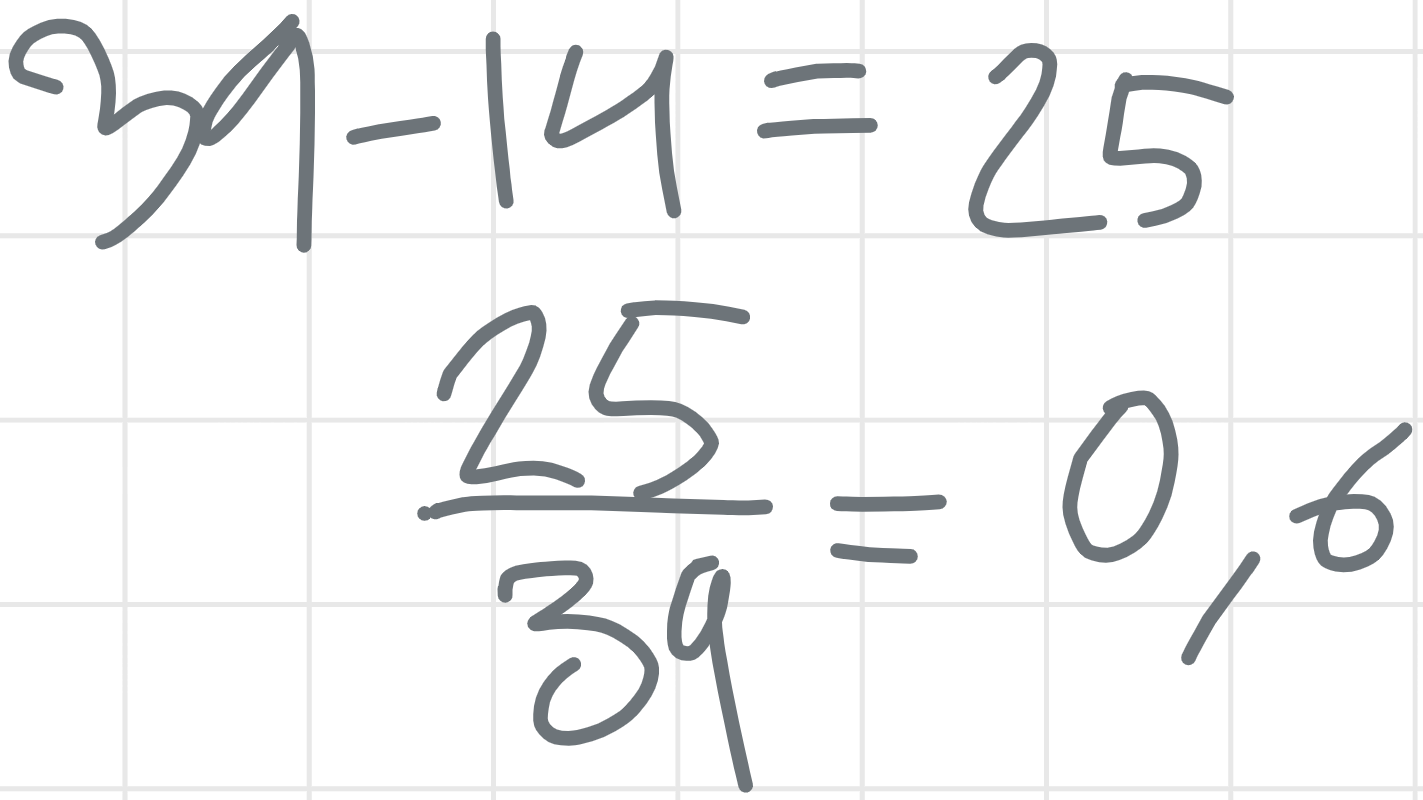 39-14=25
25/39=0,6